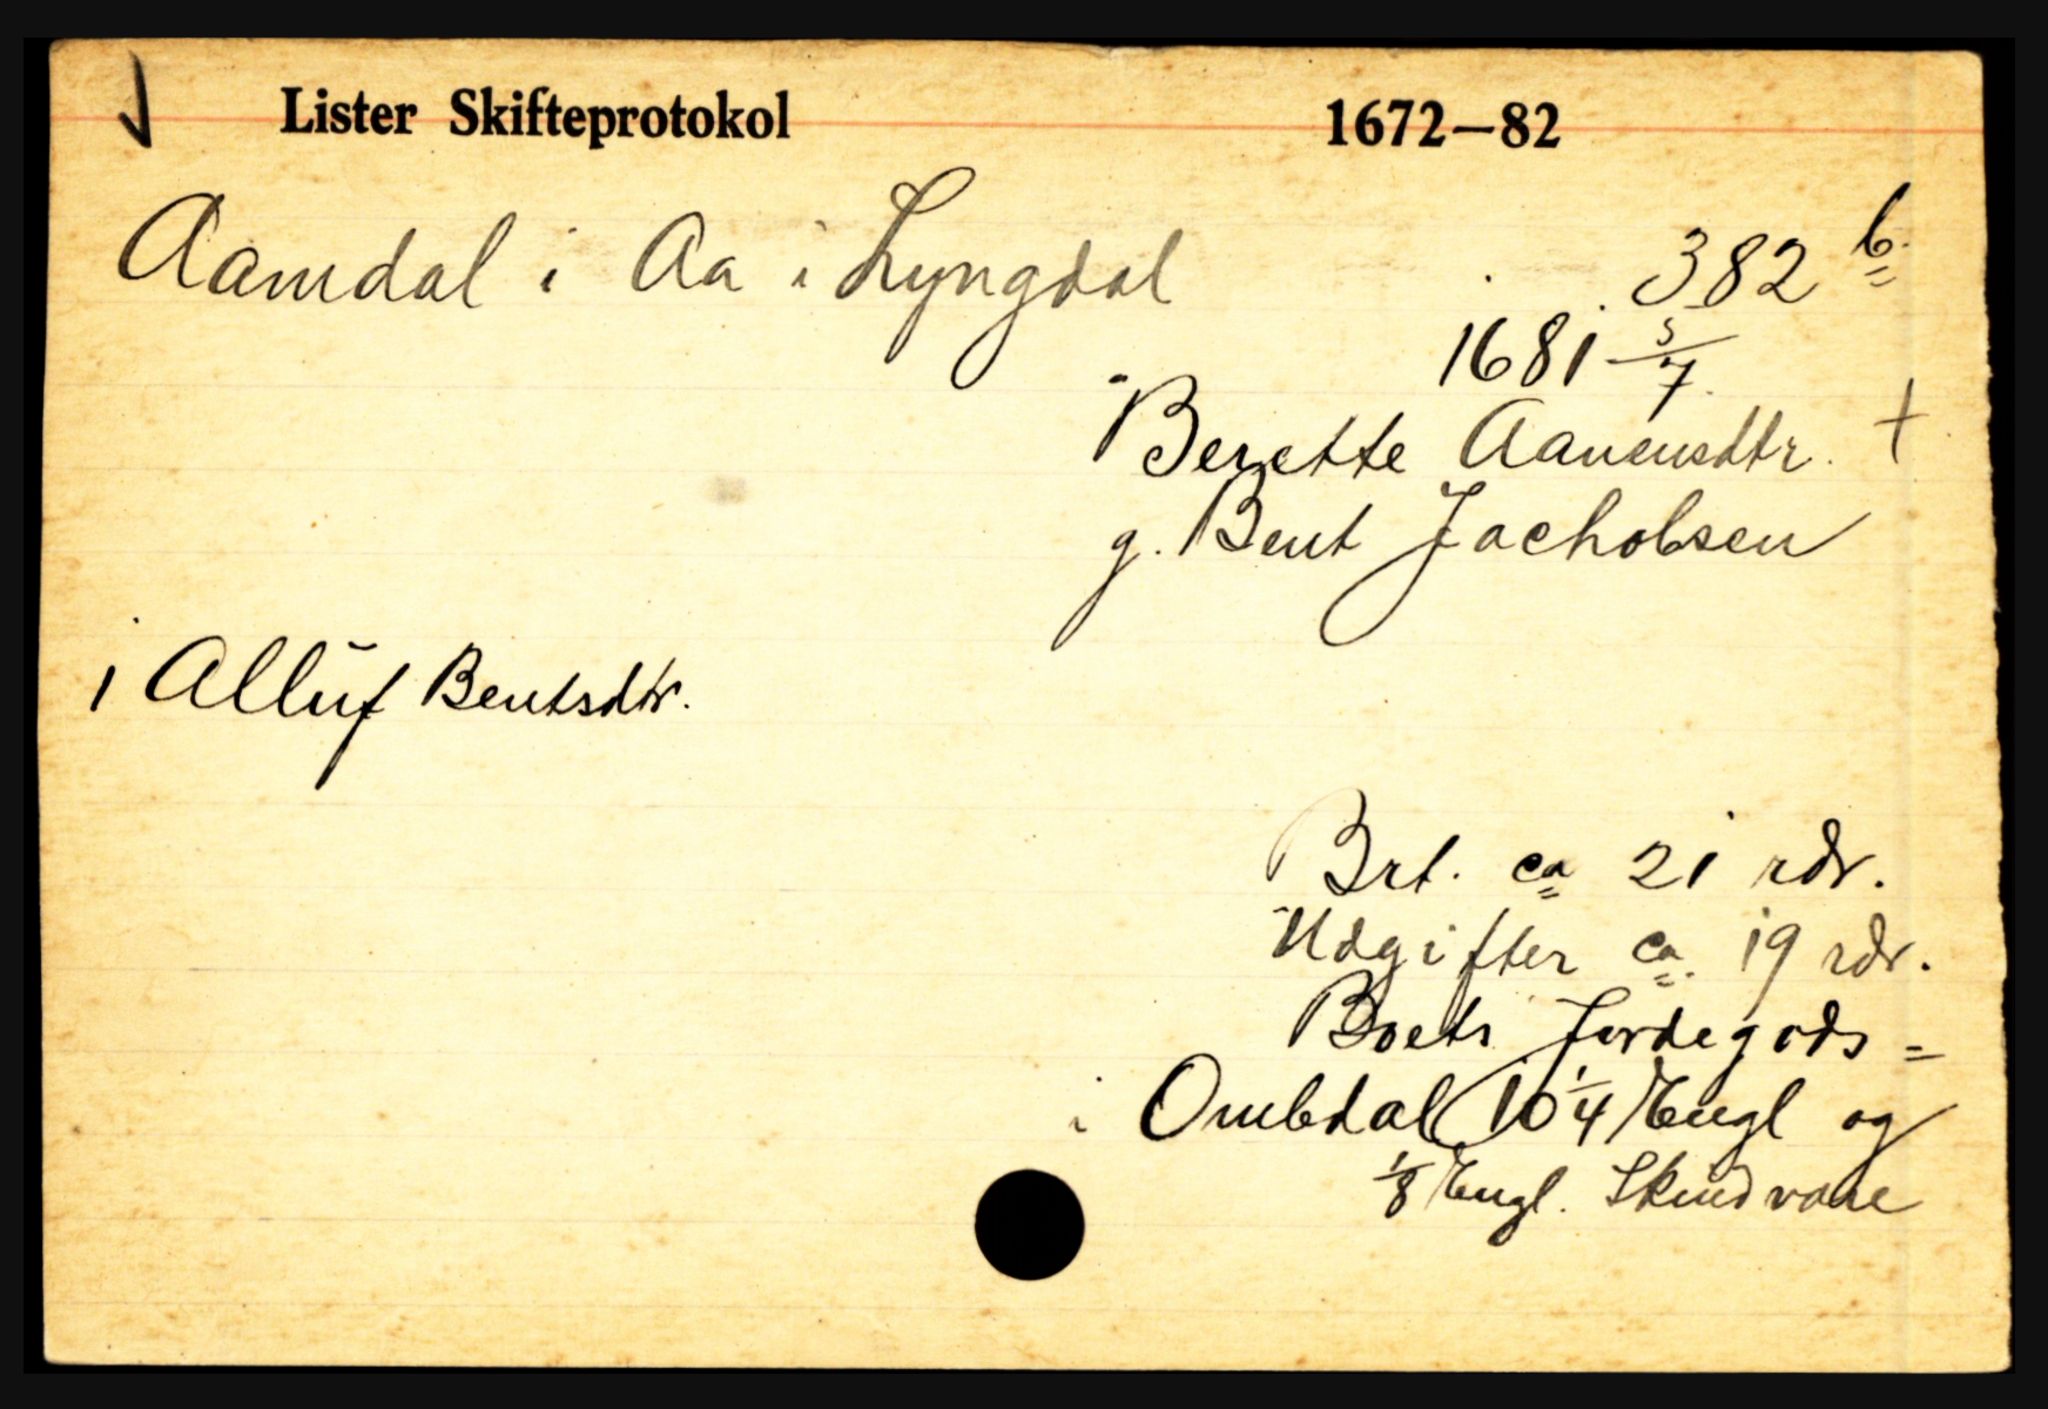 Lister Skifteprotokol 1672—82
Aamdal i Aa i Lyngdal 382 b.
1681 5/7.
Berette Aanensdtr. †
g. Bent Jachobsen
1 Alluf Bentsdtr.
Brt. ca 21 rdr.
Udgifter ca. 19 rdr.
Boets Jordegods =
i Ombdal 10 1/4 Engl og
1/8 Engl. Skindvare